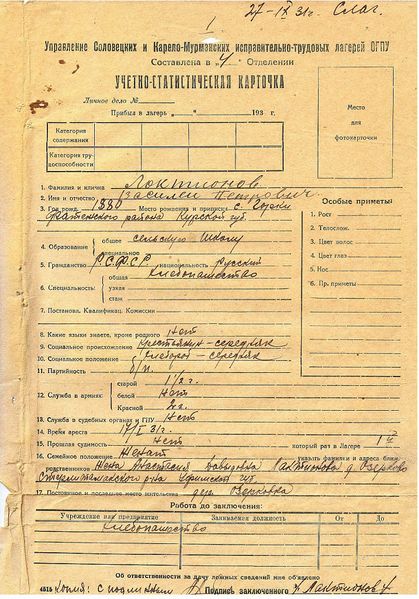 27-IX 31г. Слаг.
1
Управление Соловецких и Карело-Мурманских исправительно-трудовых лагерей ОГПУ
Составлена в „4“ Отделении
УЧЕТНО-СТАТИСТИЧЕСКАЯ КАРТОЧКА
Личное дело №
Прибыл в лагерь „ “ 193 г.
Категория содержания
Категория трудоспособности
Место
для
фотокарточки
1. Фамилия и кличка Локтионов
2. Имя и отчество Василей Петрович
3. Год рожд. 1880 Место рождения и приписки с. Горки
Фатежского района Курской губ.
4. Образование общее сельскую школу
специальное
5. Гражданство Р.С.Ф.С.Р. национальность русский
6. Специальность: общая хлебопашество
узкая
стаж
7. Постановл. Квалификац. Комиссии
8. Какие языки знаете, кроме родного Нет
9. Социальное происхождение крестьянин-середняк
10. Социальное положение хлебороб-середняк
11. Партийность б/п.
12. Служба в армии: старой 1½ г.
белой нет
Красной 2 г.
13. Служба в судебных органах и ГПУ Нет
14. Время ареста 17/I 31г.
15. Прошлая судимость нет который раз в Лагере 1й
16. Семейное положение Женат указать фамилии и адреса ближ.
родственников Жена Анастасия Локтионова д. Озерково
Стерлитамакского р-на Уфимской губ.
17. Постоянное и последнее место жительства дер. Озерковка
Особые приметы:
1. Рост
2. Телослож.
3. Цвет волос
4. Цвет глаз
5. Нос
6. Пр. приметы
Работа до заключения:
Учреждение или предприятие Занимаемая должность От До
хлебопашество
Об ответственности за дачу ложных сведений мне объявлено
4515 Копия: с подлинным Подпись заключенного Локтионов